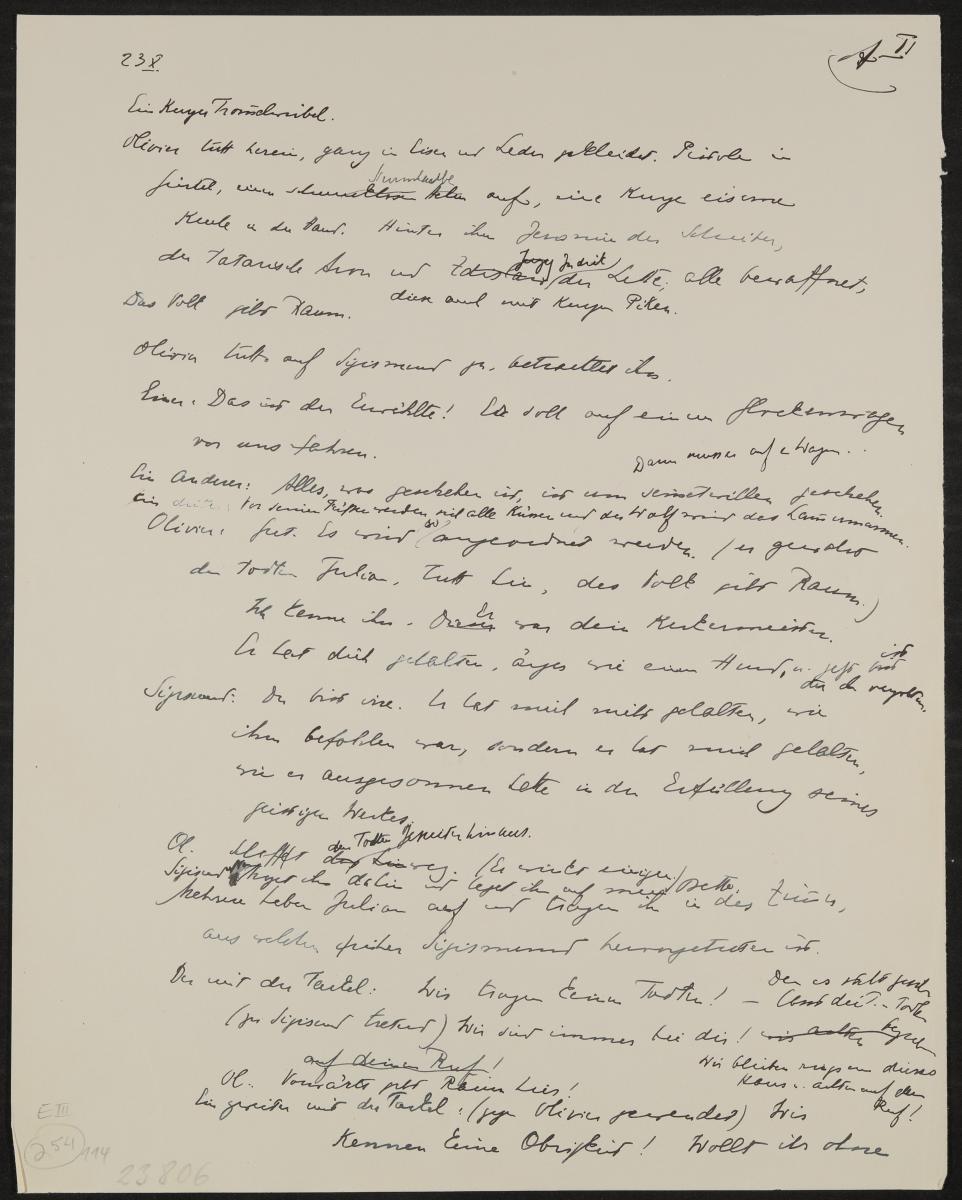 23 X.
A II
Ein kurzer Trommelwirbel.
Olivier tritt herein, ganz in Eisen und Leder gekleidet. Pistolen im
Gürtel, einen Sturmhaube auf, eine kurze eiserne
Keule in der Hand. Hinter ihm Jeronim der Schreiber,
der tatarische Aron und Indrik der Lette; alle bewaffnet,
diese auch mit kurzen Piken.
Das Volk gibt Raum.
Olivier tritt auf Sigismund zu, betrachtet ihn.
Einer: Das ist der Erwählte! Er soll auf einem Glockenwagen
vor uns fahren.
Dann musser auf n Wagen . .
Ein Anderer: Alles, was geschehen ist, ist um seinetwillen geschehen.
Ein dritter: Vor seinen Füßen werden sich alle küssen und der Wolf wird das Lamm umarmen.
Olivier: Gut. Es wird so angeordnet werden. (er gewahrt
den todten Julian, tritt hin, das Volk gibt Raum.)
Ich kenne ihn. Dieser Er war dein Kerkermeister.
Er hat dich gehalten, ärger wie einen Hund, u. jetzt ist
Sigismund: Du bist irre. Er hat mich nicht gehalten, wie
ihm befohlen war, sondern er hat mich gehalten,
wie er ausgesonnen hatte in der Erfüllung seines
geistigen Werkes.
Ol. Schafft den Todten hinaus. (Er winkt einigen)
Sigismund ihn dahin und leget ihn auf mein Bette.
Mehrere heben Julian auf und tragen ihn in das Zimmer,
aus welchem früher Sigismund herausgetreten ist.
Der mit der Fackel: Wir tragen Einen Todten! –
(zu Sigismund tretend) Wir sind immer bei dir!
auf deinen Ruf!
Wir bleiben rings um dieses
Haus u. achten auf den
Ruf!
Ol. Vorwärts gebt Raum hier!
Ein zweiter mit der Fackel: (gegen Olivier gewendet) Wir
kennen Eine Obrigkeit! Wollt ihr ohne
E III
254/114
23806